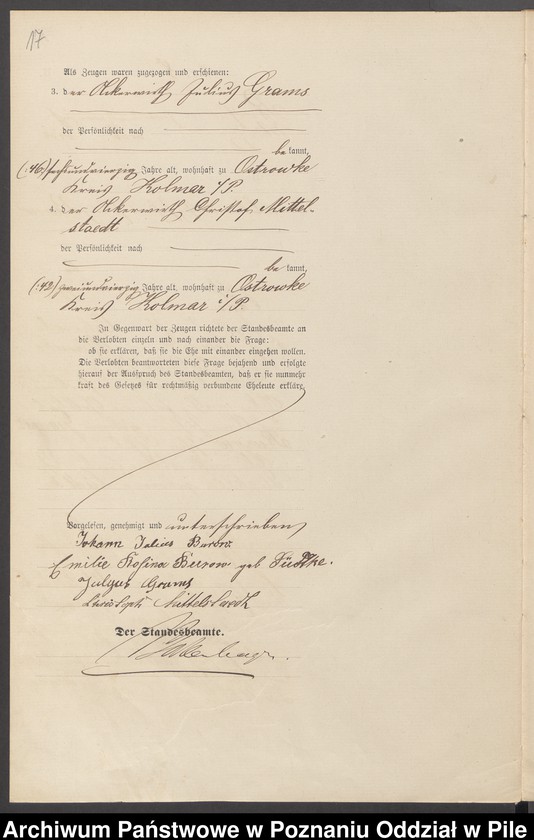 17
Als Zeugen waren zugezogen und erschienen:
3. der Ackerwirth Julius Grams
der Persönlichkeit nach
be kannt,
(:46) sechsundvierzig Jahre alt, wohnhaft zu Ostrowke
Kreis Kolmar i/P.
4. der Ackerwirth Christof Mittel-
staedt
der Persönlichkeit nach
be kannt,
(:42) zweiundvierzig Jahre alt, wohnhaft zu Ostrowke
Kreis Kolmar i/P.
In Gegenwart der Zeugen richtete der Standesbeamte an
die Verlobten einzeln und nach einander die Frage:
ob sie erklären, daß sie die Ehe mit einander eingehen wollen.
Die Verlobten beantworteten diese Frage bejahend und erfolgte
hierauf der Ausspruch des Standesbeamten, daß er sie nunmehr
kraft des Gesetzes für rechtmäßig verbundene Eheleute erkläre.
Vorgelesen, genehmigt und unterschrieben
Johann Julius Burow
Emilie Rosina Burow geb Lüdtke.
Julius Grams
Mittelstaedt
Der Standesbeamte.
Archiwum Państwowe w Poznaniu Oddział w Pile